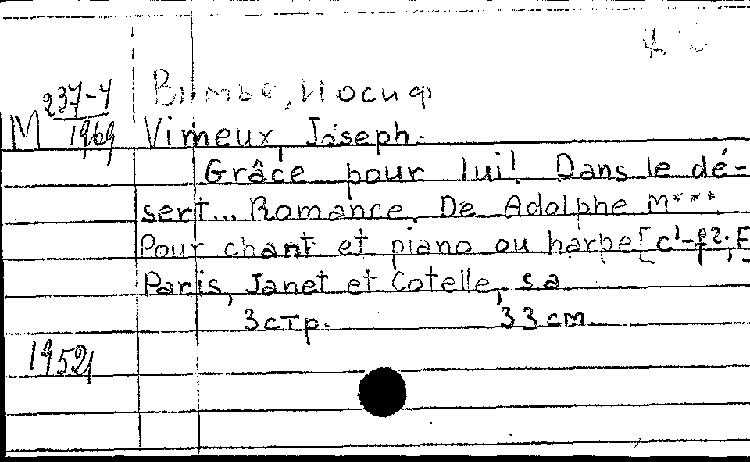 М 237-4/1969
Иосиф
Vimeux, Joseph.
Grâce pour lui! Dans le dé-
sert... Romance. De Adolphe M***.
Pour chant et piano ou harpe [c¹-f2; E
Paris, Janet et Cotelle, s.a.
3 стр. 33 см
19521